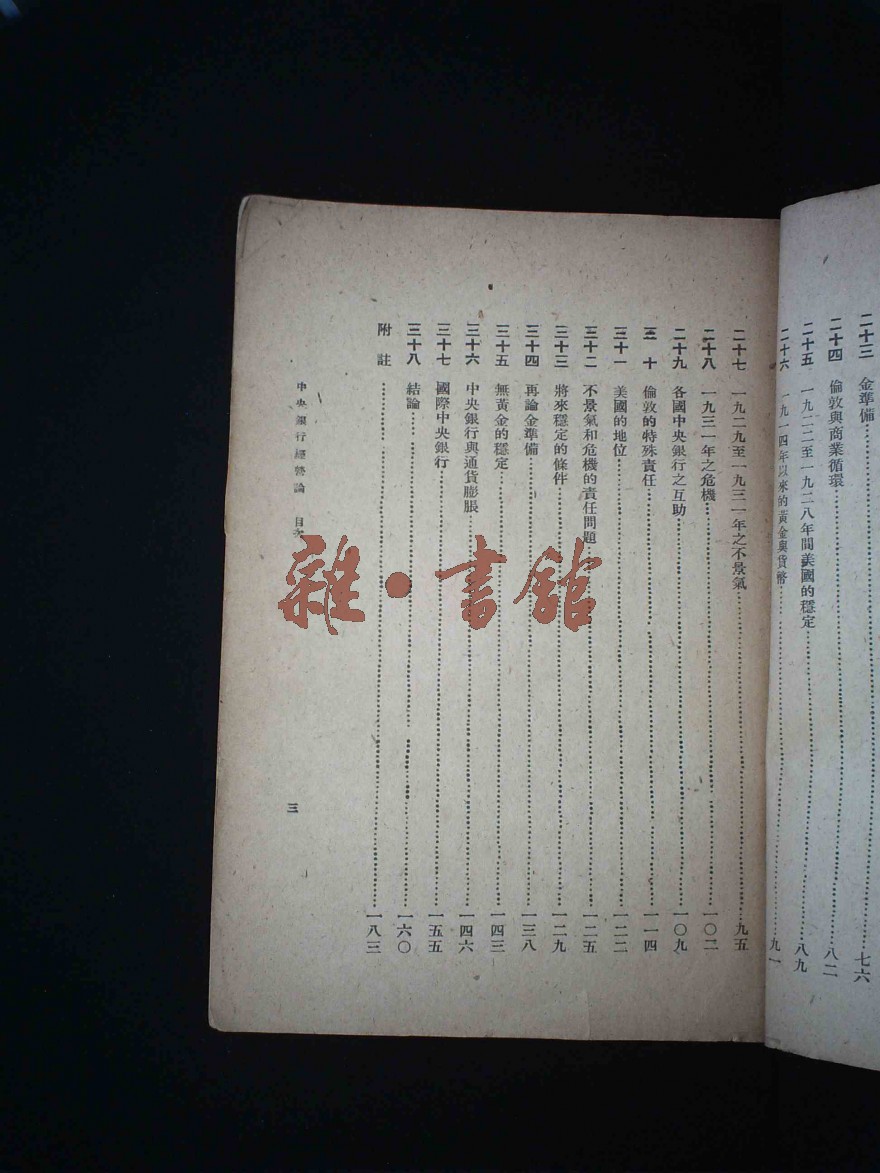 二十三 金準備 七六
二十四 倫敦與商業循環 八二
二十五 一九二二至一九二八年間美國的穩定 八九
二十六 一九一四年以來的黃金與貨幣 九一
二十七 一九二九至一九三一年之不景氣 九五
二十八 一九三一年之危機 一〇二
二十九 各國中央銀行之互助 一〇九
三十 倫敦的特殊責任 一一四
三十一 美國的地位 一二二
三十二 不景氣和危機的責任問題 一二五
三十三 將來穩定的條件 一二九
三十四 再論金準備 一三八
三十五 無黃金的穩定 一四三
三十六 中央銀行與通貨膨脹 一四六
三十七 國際中央銀行 一五五
三十八 結論 一六〇
附註 一八三
中央銀行經營論 目次 三
雜·書館